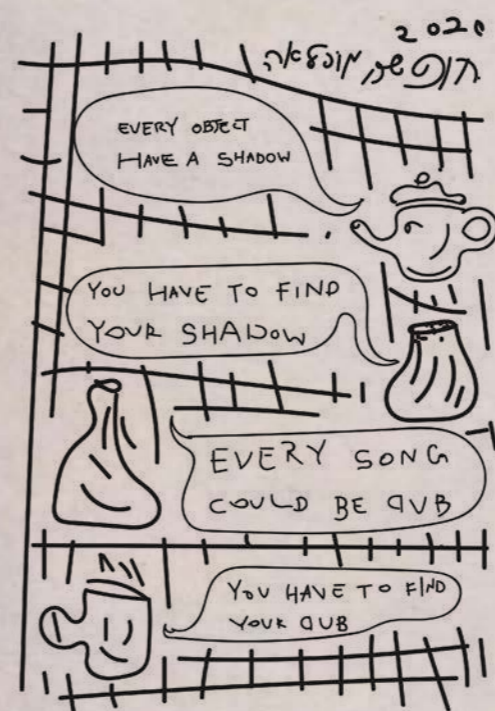 2020
חופשה מופלאה
EVERY OBJECT
HAVE A SHADOW
YOU HAVE TO FIND
YOUR SHADOW
EVERY SONG
COULD BE DUB
YOU HAVE TO FIND
YOUR DUB